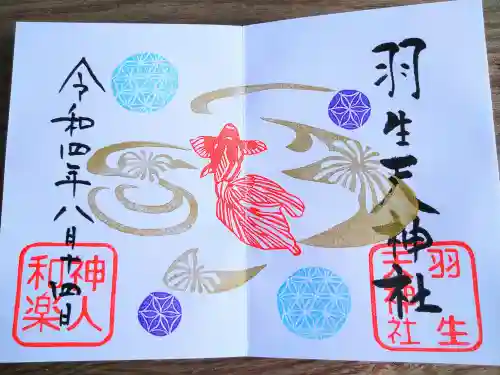 羽生天神社
羽生
天神社
令和四年八月十四日
神人
和楽